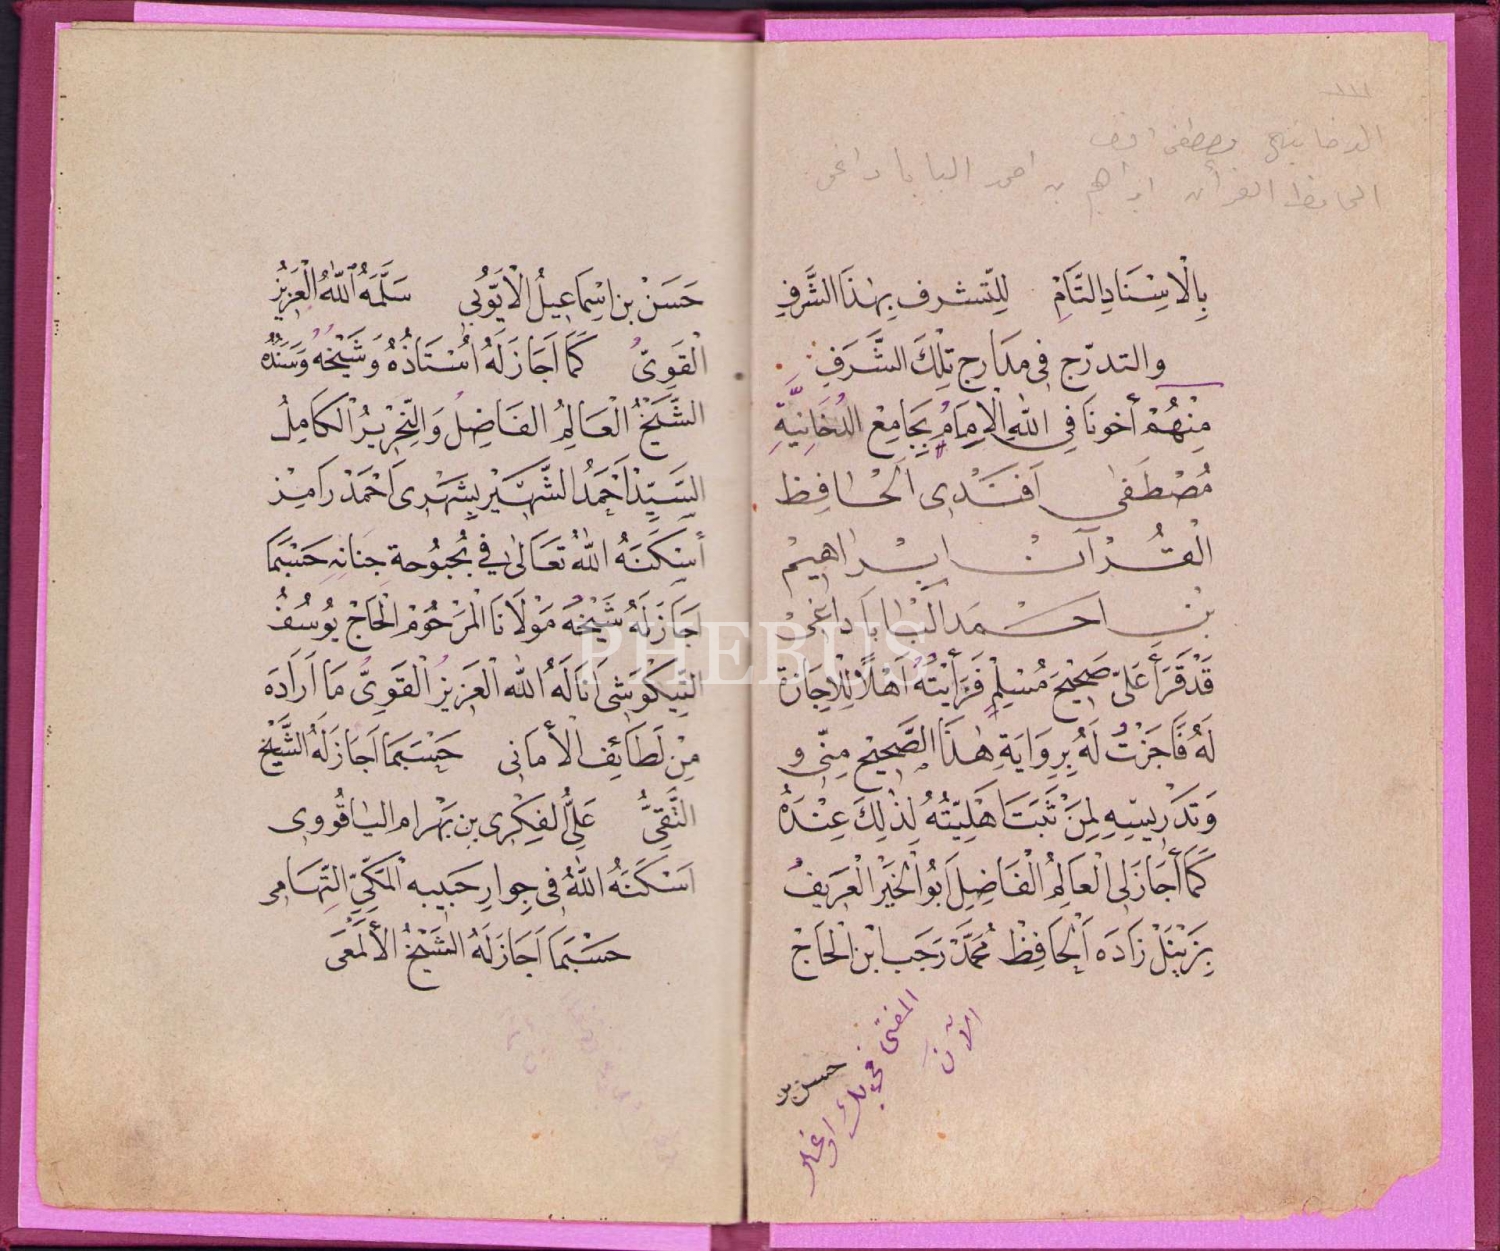 الدخانيه مصطفى افند
الحافظ القرأن ابراهيم بن احمد البابا داغى
بِالْاِسْنَادِ التَّامِّ لِلتّشرف بِهٰذَا الشَّرَفِ
والتدرّج فى مدَارج تِلْكَ الشَّرَفِ
مِنْهُمْ أخونَا فِي اللهِ الْاِمَامُ بِجَامِعْ الدُّخَانِيَّةِ
مُصْطَفٰى اَفَنْدِى اَلْحَافِظ
الْقُرْآنْ اِبْرَاهِيمْ
بْن اَحْمَد اَلْبَابَا دَاغِىْ
قَدْ قَرَأَ عَلَىَّ صَحِيْحَ مُسْلِمٍ فَرَأَيْتُهُ اَهْلًا لِلْاِجَازَة
لَهُ فَاَجَزْتُ لَهُ بِرِوَايَةِ هٰذَا الصَّحِيْحِ مِنّى و
وَتَدْرِيسِهِ لِمَنْ ثَبَتَ اَهْلِيّتُهُ لِذٰلِكَ عِنْدَهُ
كَمَا أَجَازَلِى الْعَالِمُ الْفَاضِلَ اَبُو الْخَيْرْ الْعَرِيفُ
بِزَيْنَلْ زَادَه اَلْحَافِظْ مُحَمَّدْ رَجَب ابْن الْحَاجْ
حسن بن
المفتى فى بك اوغلى
الآن
حَسَنْ بن اِسْمَاعِيلُ الْاَيّوُبِي سَلَّمَهُ اللهُ الْعَزِيْزُ
الْقَوِىّ كَمَا اَجَازَ لَهُ اُسْتَاذُهُ وَشَيْخُهُ وَسَنَدُهُ
الشَّيْخُ الْعَالِمُ الفَاضِلُ وَالنِّحْرِيرُ الْكَامِلُ
السَيّدْ اَحْمَدُ الشَّهِيْر بِشَهْرِى اَحْمَدْ رَامِزْ
أَسْكَنَهُ اللهُ تَعَالٰى فِي بُحْبُوحة جِنَانِهِ حَسْبَمَا
اَجَازَ لَهُ شَيْخُهُ مَوْلَانَا الْمَرْحُوْمْ الْحَاجْ يُوسُفُ
التيكْوَشى اَنَالَهُ اللهُ الْعَزِيزُ الْقَوِىُّ مَا اَرَادَه
مِنْ لَطَائِف الْأمَانِى حَسْبَمَا اَجَازَ لَهُ الشَّيْخ
التَّقِىُّ عَلِىُّ الفِكْرِى بن بَهْرام اليٰاقُووى
اَسْكَنَهُ اللهُ فى جِوارِ حَبيبه الْمَكِّىّ التِّهَامى
حَسْبَمَا اَجَازَ لَهُ الشَيْخُ الْألْمَعَى
PHEBUS